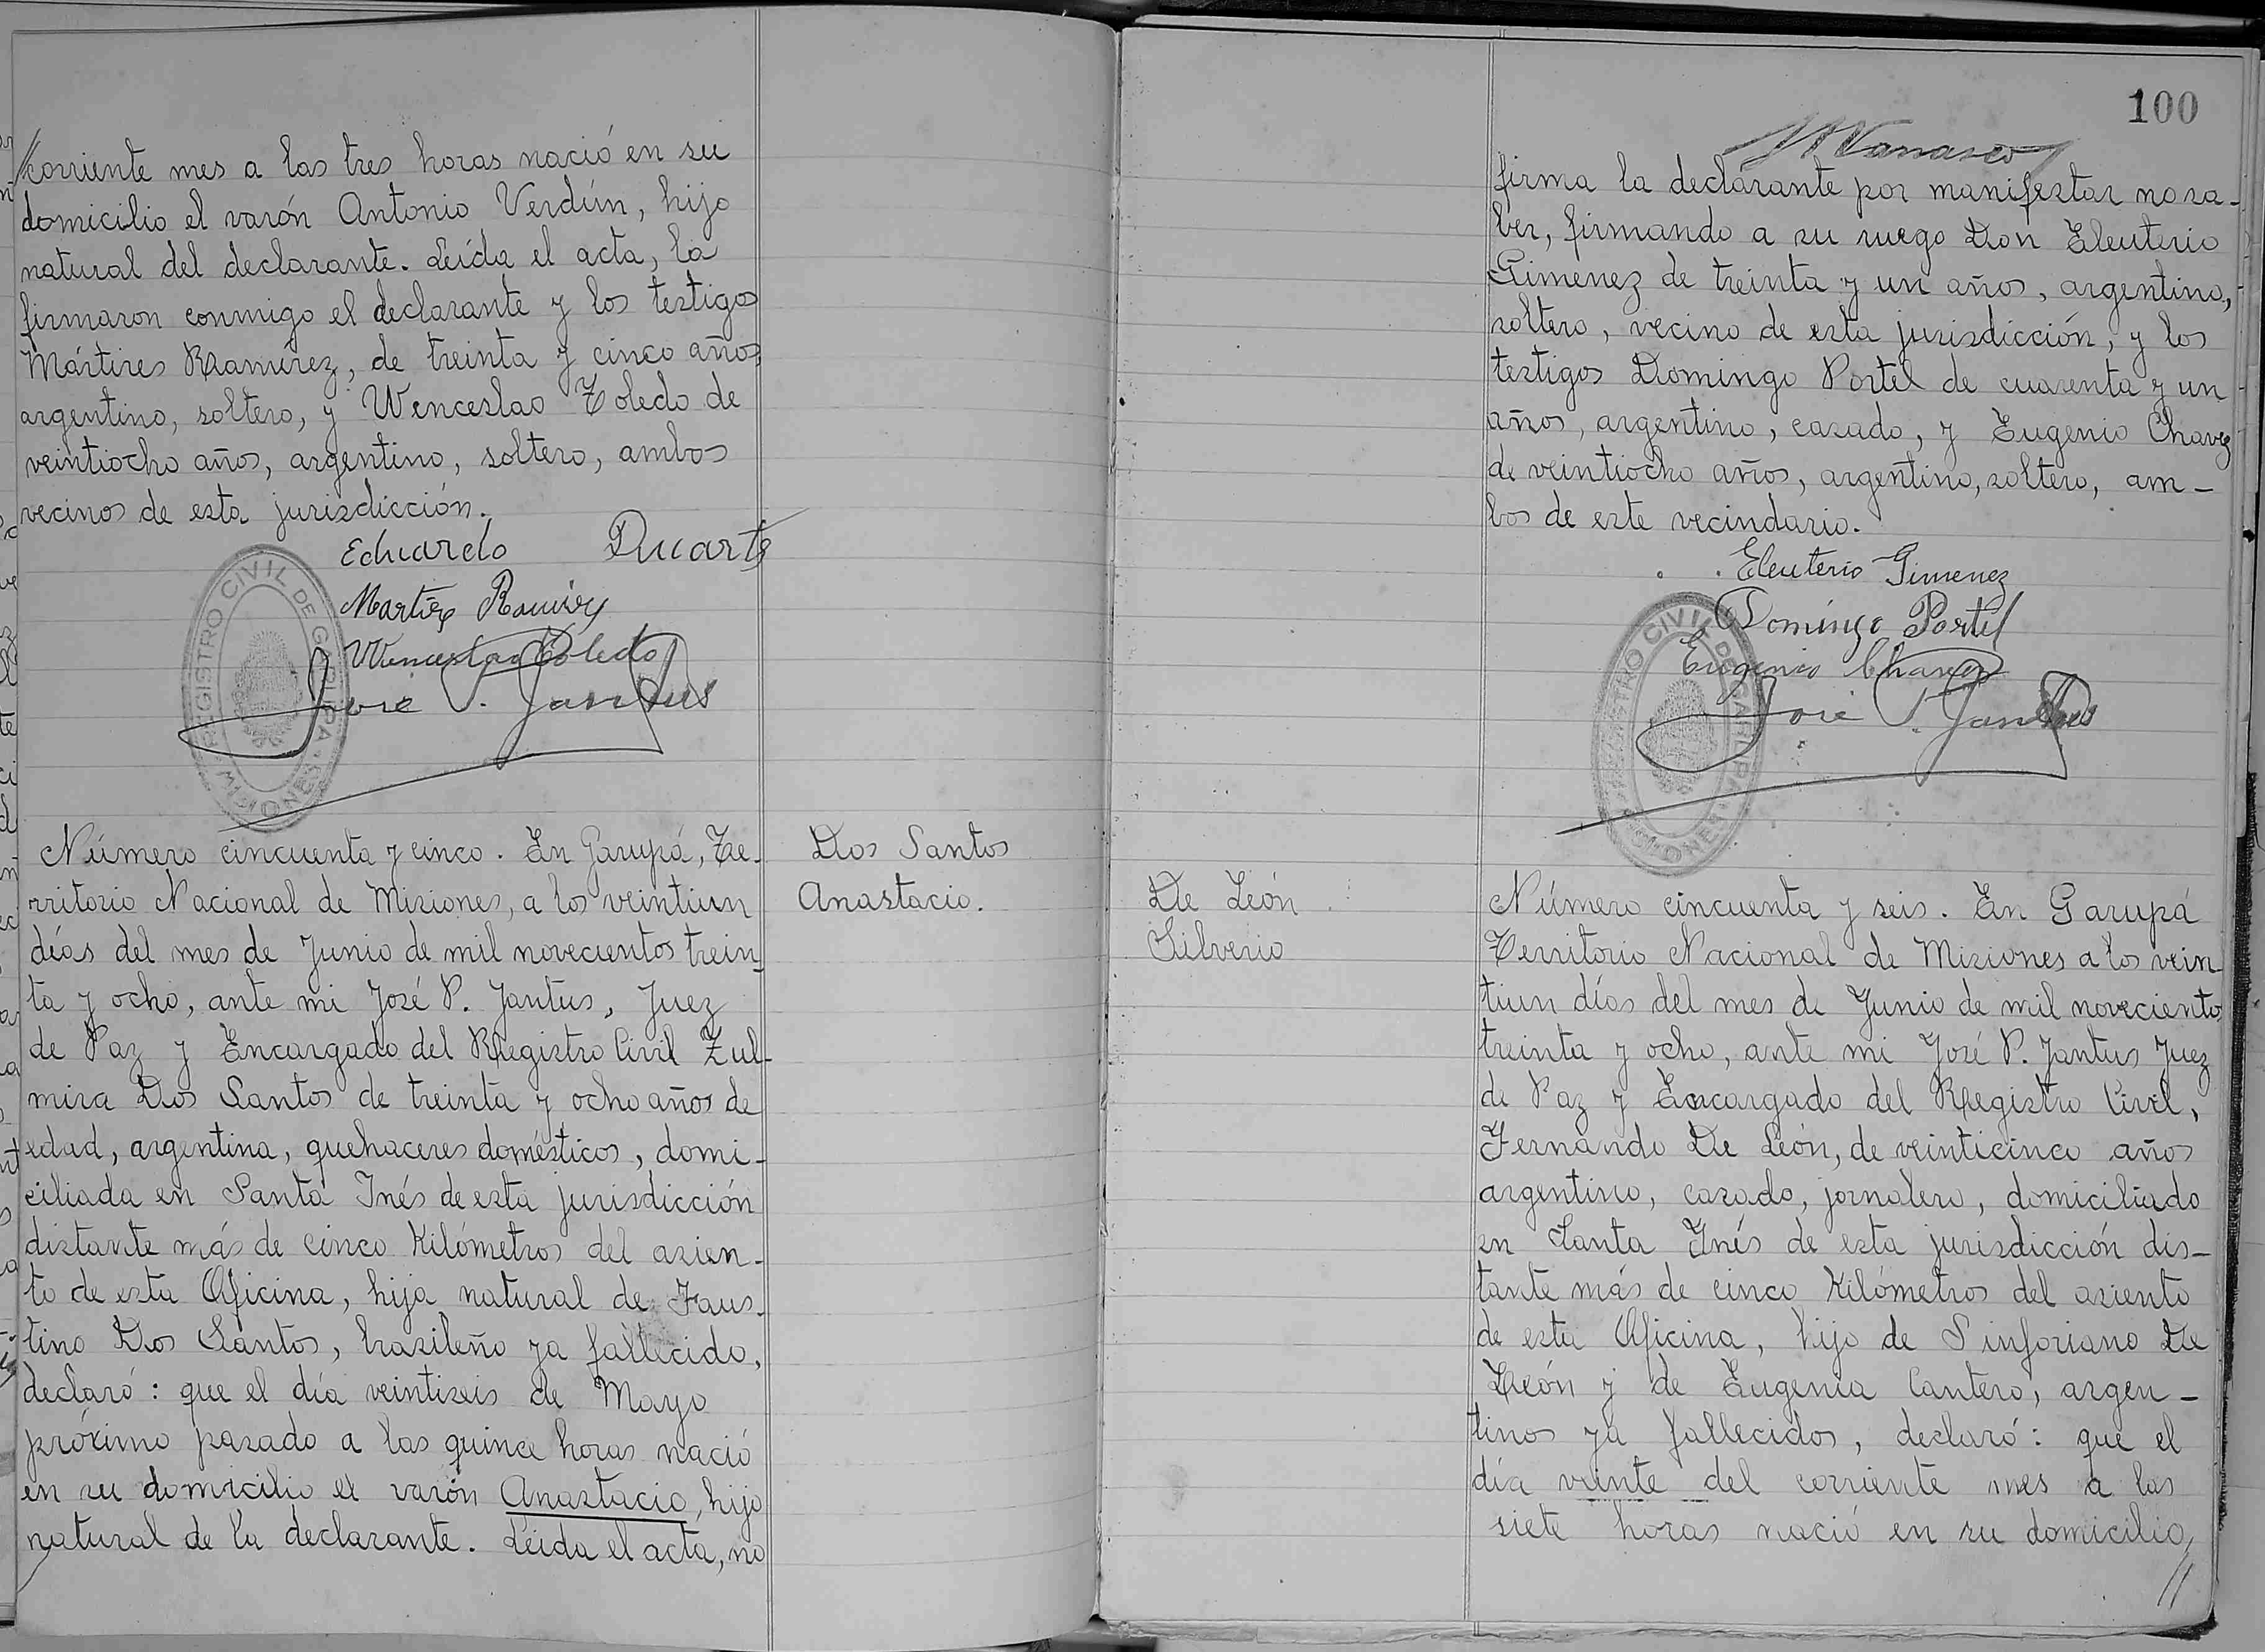 corriente mes a las tres horas nació en su
domicilio el varón Antonio Verdún, hijo
natural del declarante. Leída el acta, la
firmaron conmigo el declarante y los testigos
Mártires Ramírez, de treinta y cinco años,
argentino, soltero, y Wenceslao Toledo de
veintiocho años, argentino, soltero, ambos
vecinos de esta jurisdicción.
Eduardo Duarte
Martires Ramirez
Wenceslao Toledo
José P. Jantus
REGISTRO CIVIL DE GARUPA
MISIONES
Número cincuenta y cinco. En Garupá, Te-
rritorio Nacional de Misiones, a los veintiun
días del mes de Junio de mil novecientos trein-
ta y ocho, ante mi José P. Jantus, Juez
de Paz y Encargado del Registro Civil Zul-
mira Dos Santos de treinta y ocho años de
edad, argentina, quehaceres domésticos, domi-
ciliada en Santa Inés de esta jurisdicción
distante más de cinco Kilómetros del asien-
to de esta Oficina, hija natural de Faus-
tino Dos Santos, brasileño ya fallecido,
declaró: que el día veintiseis de Mayo
próximo pasado a las quince horas nació
en su domicilio el varón Anastacio, hijo
natural de la declarante. Leida el acta, no
Dos Santos
Anastacio.
100
firma la declarante por manifestar no sa-
ber, firmando a su ruego Don Eleuterio
Gimenez de treinta y un años, argentino,
soltero, vecino de esta jurisdicción, y los
testigos Domingo Portel de cuarenta y un
años, argentino, casado, y Eugenio Chavez
de veintiocho años, argentino, soltero, am-
bos de este vecindario.
Eleuterio Gimenez
Domingo Portel
Eugenio Chavez
José P. Jantus
REGISTRO CIVIL DE GARUPA
MISIONES
De León
Silverio
Número cincuenta y seis. En Garupá
Territorio Nacional de Misiones a los vein
tiun días del mes de Junio de mil novecientos
treinta y ocho, ante mi José P. Jantus Juez
de Paz y Encargado del Registro Civil,
Fernando De León, de veinticinco años
argentino, casado, jornalero, domiciliado
en Santa Inés de esta jurisdicción dis-
tante más de cinco Kilómetros del asiento
de esta Oficina, hijo de Sinforiano De
León y de Eugenia Cantero, argen-
tinos ya fallecidos, declaró: que el
día veinte del corriente mes a las
siete horas nació en su domicilio,